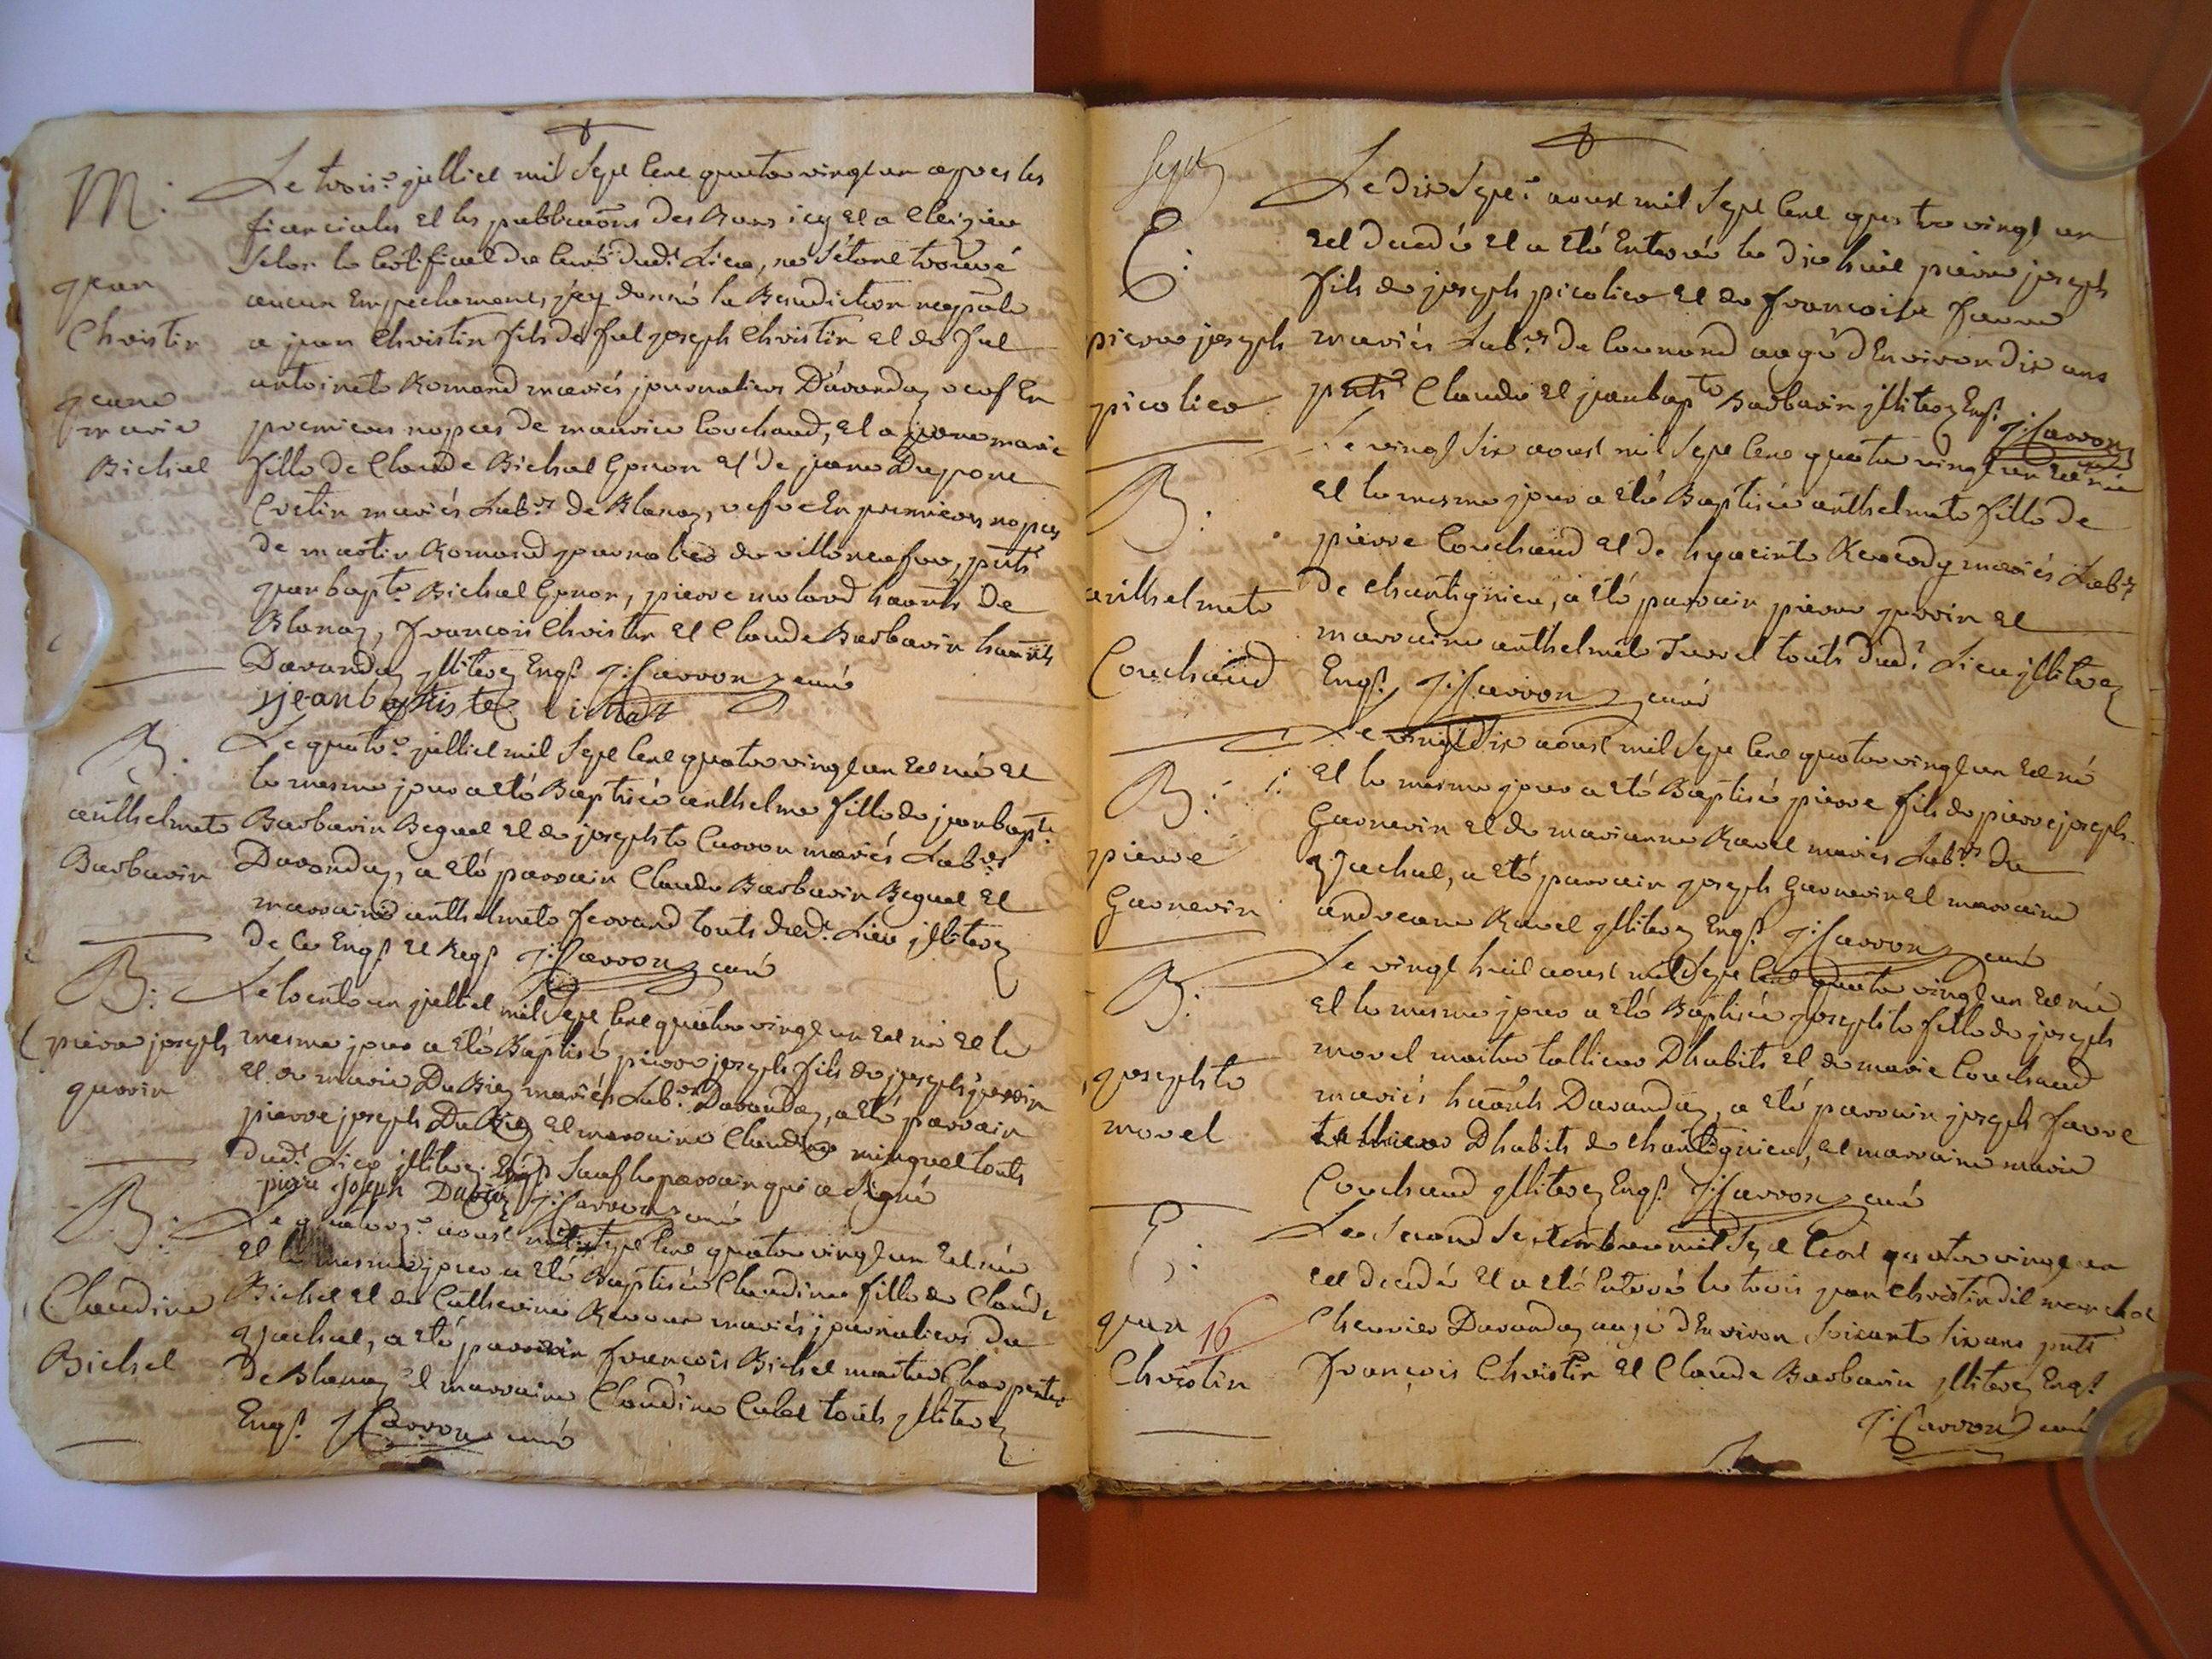 M:
jean
Christin
jeane
marie
Bichat
Le trois.e julliet mil Sept Cent quatre vingt un apres les
fianciales et les publicaōns des Bans icy et a
Selon le Certificat du Curé dud.t Lieu, ne s'étant trouvé
aucun Empechement, j'ay donné la Benediction nuptiale
a jean Christin fils de fut joseph Christin et de fut
antoinete Romand mariés journaliers D'avanday veof En
premieres nopces de maurise Couchaud, et a jeane marie
fille de Claude Bichat Genon et de jeane Dupont
Cretin mariés Lab.rs de Blanaz, vefve En premieres nopces
de martin Romand journalier de villeneufve, pnts
jean bapt.e Bichat Genon, pierre molard haants De
Blanaz, francois Christin et Claude Barbarin haants
Davanday jlliterez Enq.s J: Carron curé
jjean baptiste bichat
B.
anthelmete
Barbarin
Le quatr.e julliet mil Sept Cent quatre vingt un Est née et
le mesme jour a eté Baptisée anthelme fille de jeanbapt.e
Barbarin Beguet et de josephte Carron mariés Lab.rs
Davanday, a eté parrain Claude Barbarin Beguet et
marraine anthelmete ferrand touts dud.t Lieu jlliterez
de Ce Enq.s et Req.s J: Carron curé
B:
pierre joseph
guerrin
Le trente un julliet mil Sept Cent quatre vingt un Est né et le
mesme jour a eté Baptisé pierre joseph fils de joseph guerrin
et de marie Dubiez mariés Lab.rs Davanday, a eté parrain
pierre joseph Dubiez et marraine Claudine minguet touts
dud.t Lieu jlliterez Enq.s Sauf le parrain qui a Signé
piere joseph Dubiez J: Carron curé
B:
Claudine
Bichet
Le quatorz.e aoust mil Sept Cent quatre vingt un Est née
et le mesme jour a eté Baptisée Claudine fille de Claude
Bichet et de Catherine mariés journaliers du
, a eté parrain francois Bichet maitre Charpentier
de Blanaz et marraine Claudine Cubet touts jlliterez
Enq.s J: Carron curé
Sept
E:
pierre joseph
picolier
Le dix Sept.e aoust mil Sept Cent quatre vingt un
est decedé et a eté Enterré le dix huit pierre joseph
fils de joseph picolier et de francoise favre
mariés Lab.rs de Counand aagé d'Environ dix ans
pnts Claude et jeanbap.te Barbarin jlliterez Enq.s J: Carron curé
B:
anthelmete
Couchaud
Le vingt Six aoust mil Sept Cent quatre vingt un Est née
et le mesme jour a eté Baptisée anthelmete fille de
pierre Couchaud et de hyacinte mariés Lab.rs
de Chantignieu, a eté parrain pierre guerrin et
marraine anthelmete Turrel touts dud.t Lieu jlliterez
Enq.s J: Carron curé
B:
pierre
Garnerin
Le vingt Six aoust mil Sept Cent quatre vingt un Est né
et le mesme jour a eté Baptisé pierre fils de pierre joseph
Garnerin et de marianne Ravel mariés Lab.rs du
, a eté parrain joseph Garnerin et marraine
andreane Ravel jlliterez Enq.s J: Carron curé
B:
josephte
morel
Le vingt huit aoust mil Sept Cent quatre vingt un Est née
et le mesme jour a eté Baptisée josephte fille de joseph
morel maitre tallieur Dhabits et de marie Couchaud
mariés haants Davanday, a eté parrain joseph favre
tallieur Dhabits de Chantignieu, et marraine marie
Couchaud jlliterez Enq.s J: Carron curé
E:
jean
Christin
16
Le Second Septembre mil Sept Cent quatre vingt un
est decedé et a eté Enterré le trois jean Christin dit
Davanday aagé d'Environ Soixante Six ans pnts
françois Christin et Claude Barbarin jlliterez Enq.s
J: Carron curé